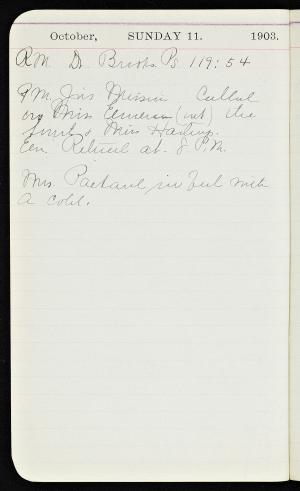 October, SUNDAY 11. 1903.
A.M. Dr. Brooks Ps 119:54
P.M. Jios Mission Called
on Miss Emerson (out) the
& Miss Harding.
Eve. Retired at 8 P.M.
Mrs. Packard in bed with
a cold.